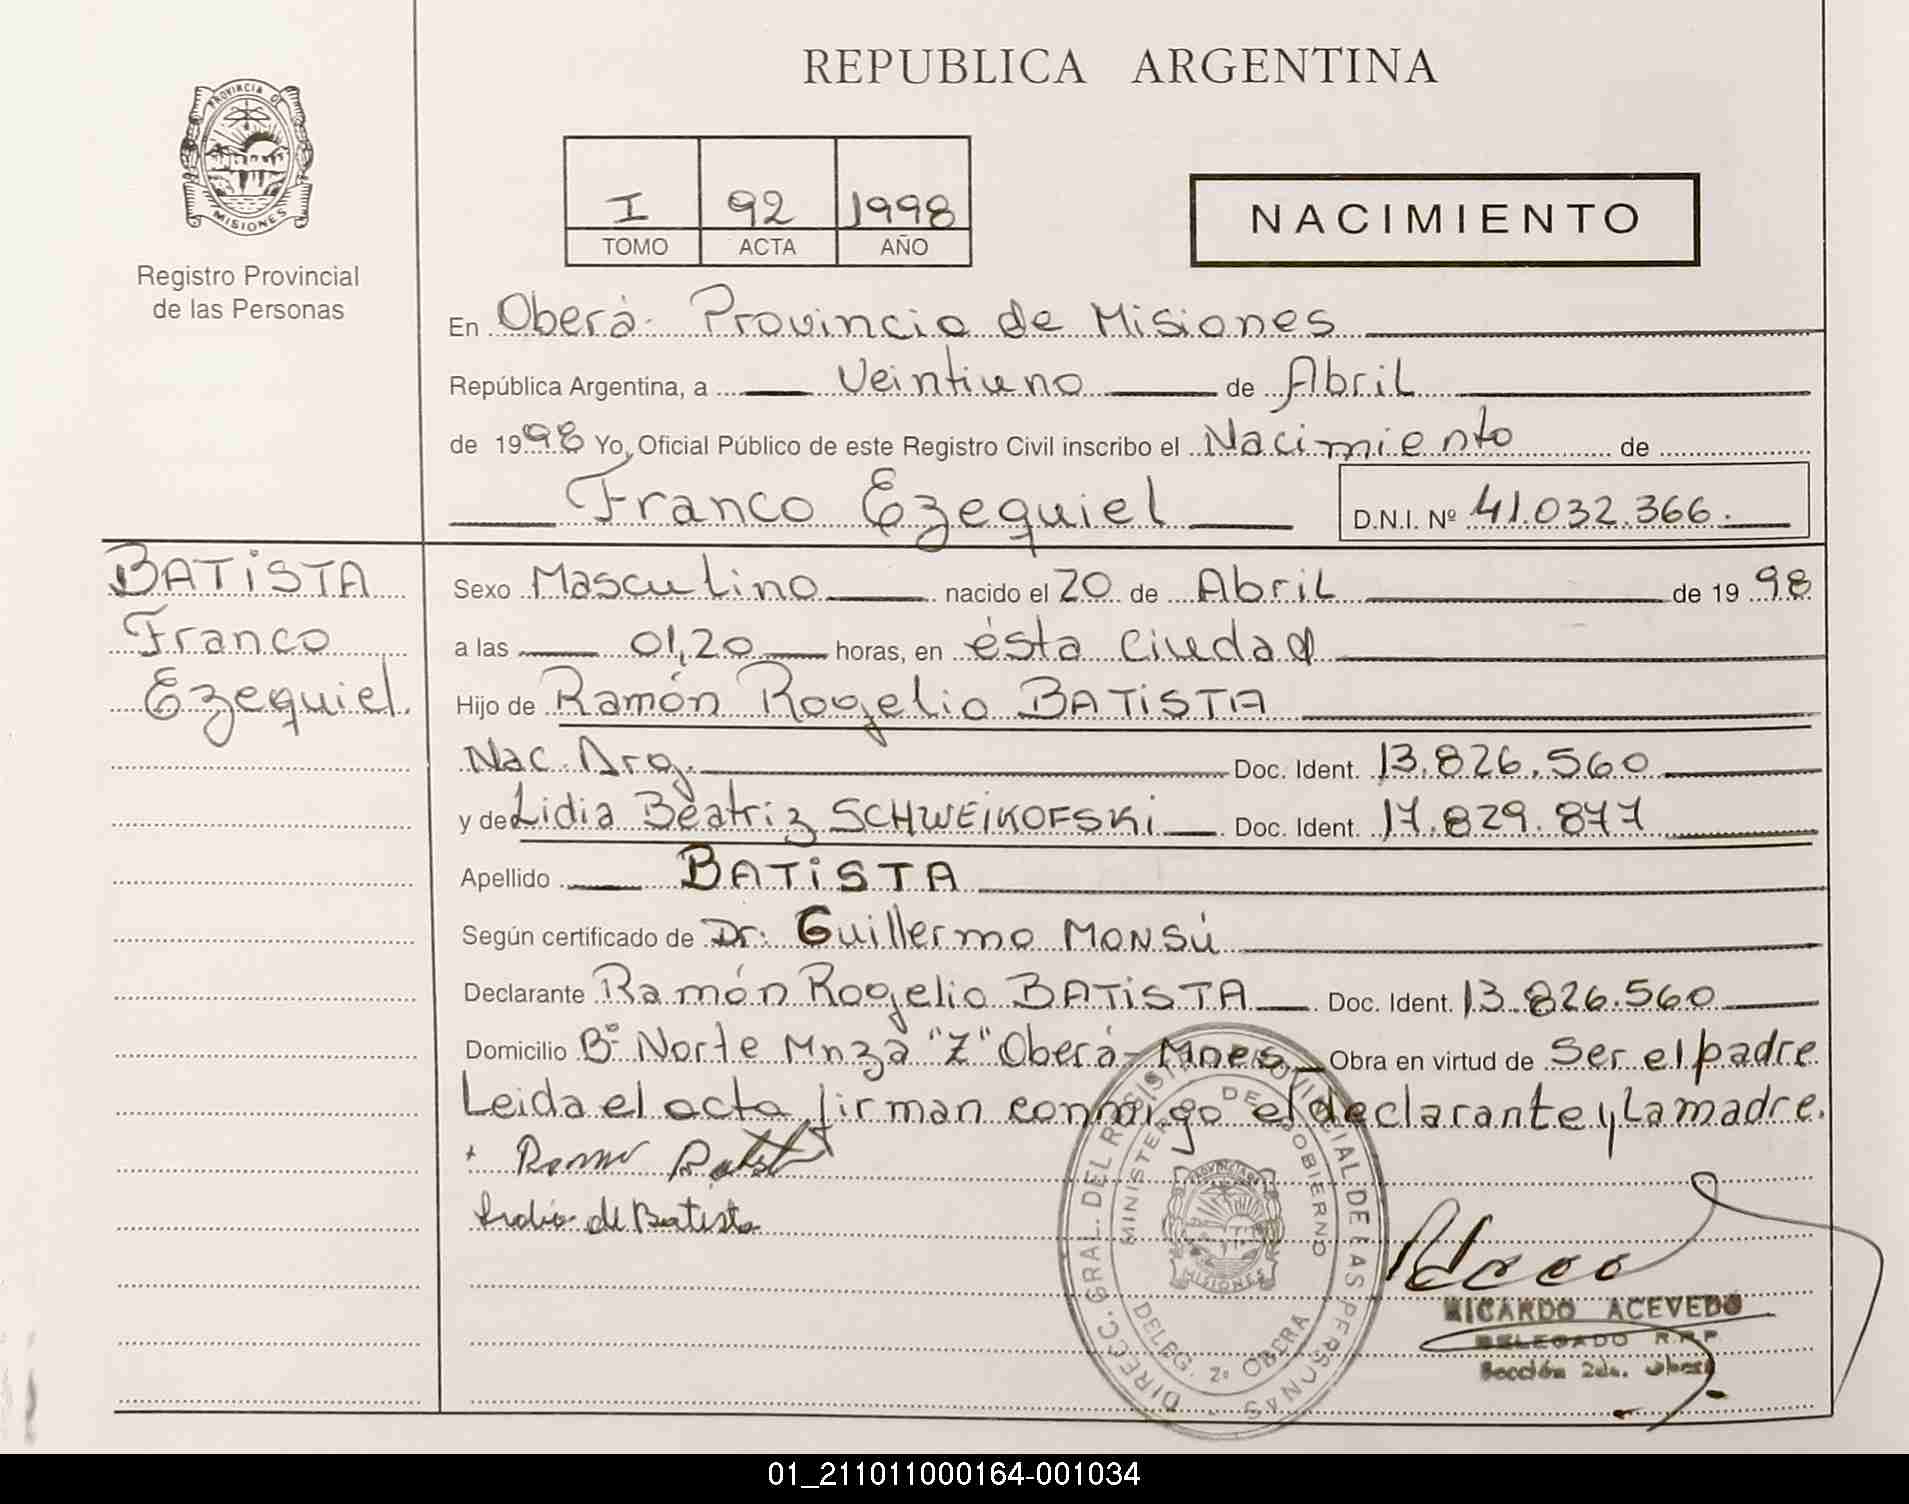 REPUBLICA ARGENTINA
PROVINCIA DE
MISIONES
Registro Provincial
de las Personas
I 92 1998
TOMO ACTA AÑO
NACIMIENTO
En Oberá - Provincia de Misiones
República Argentina, a Veintiuno de Abril
de 1998 Yo, Oficial Público de este Registro Civil inscribo el Nacimiento de
Franco Ezequiel D.N.I. Nº 41.032.366.
BATISTA
Franco
Ezequiel.
Sexo Masculino nacido el 20 de Abril de 1998
a las 01,20 horas, en ésta Ciudad
Hijo de Ramón Rogelio BATISTA
Nac. Arg. Doc. Ident. 13.826.560
y de Lidia Beatriz SCHWEIKOFSKI Doc. Ident. 17.829.877
Apellido BATISTA
Según certificado de Dr. Guillermo MONSÚ
Declarante Ramón Rogelio BATISTA Doc. Ident. 13.826.560
Domicilio Bº Norte Mnza "Z" Oberá - Mnes Obra en virtud de Ser el padre
Leida el acta, firman conmigo el declarante y La madre.
Ramon Batista
Lidia de Batista
DIRECC. GRAL. DEL REGISTRO PROVINCIAL DE LAS PERSONAS
MINISTERIO DE GOBIERNO
PROVINCIA DE
MISIONES
DELEG. 2ª OBERA
RICARDO ACEVEDO
DELEGADO R.P.P
Sección 2da. Oberá
01_211011000164-001034